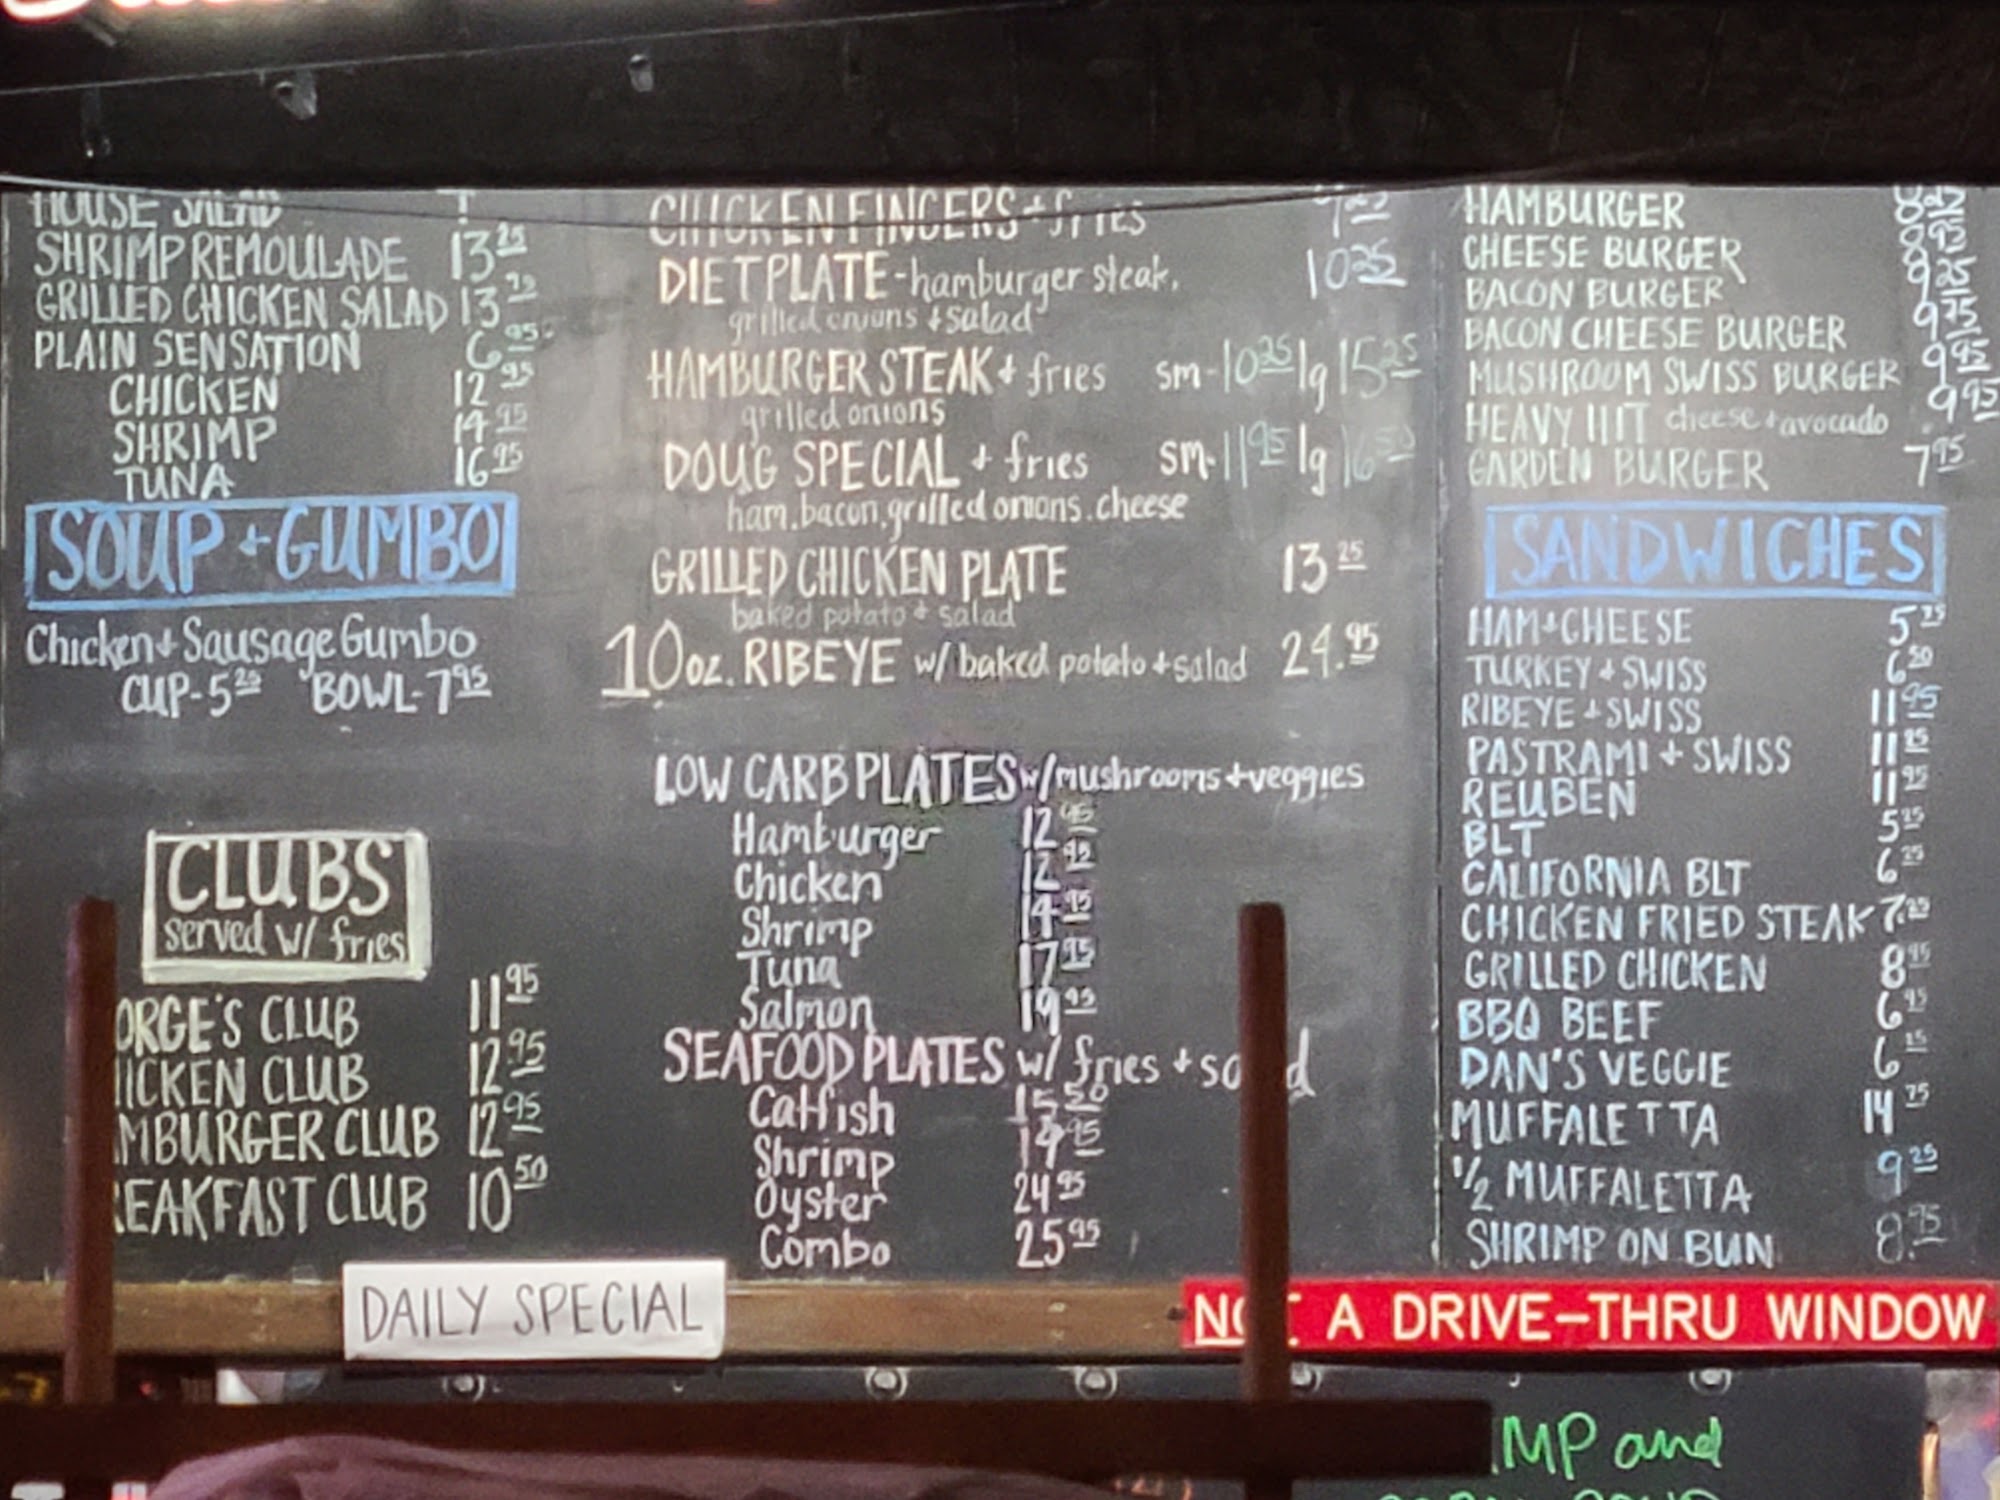 HOUSE SALAD
SHRIMP REMOULADE 13 25
GRILLED CHICKEN SALAD 13
PLAIN SENSATION 6 95
CHICKEN 12 95
SHRIMP 14 95
TUNA 16 95
SOUP + GUMBO
Chicken + Sausage Gumbo
CUP - 5 25 BOWL - 7 95
CLUBS
served w/ fries
ORGE'S CLUB 11 95
ICKEN CLUB 12 95
MBURGER CLUB 12 95
EAKFAST CLUB 10 50
CHICKEN FINGERS + fries 9 25
DIET PLATE - hamburger steak, 10 25
grilled onions + salad
HAMBURGER STEAK + fries sm - 10 25 lg 15 25
grilled onions
DOUG SPECIAL + fries sm - 11 95 lg 16 50
ham, bacon, grilled onions, cheese
GRILLED CHICKEN PLATE 13 25
baked potato + salad
10 oz. RIBEYE w/ baked potato + salad 24.95
LOW CARB PLATES w/ mushrooms + veggies
Hamburger 12 95
Chicken 12 95
Shrimp 14 95
Tuna 17 95
Salmon 19 95
SEAFOOD PLATES w/ fries + salad
Catfish 15 50
Shrimp 14 95
Oyster 24 95
Combo 25 95
HAMBURGER 8 25
CHEESE BURGER 8 95
BACON BURGER 9 25
BACON CHEESE BURGER 9 75
MUSHROOM SWISS BURGER 9 95
HEAVY HIT cheese + avocado 9 95
GARDEN BURGER 7 95
SANDWICHES
HAM + CHEESE 5 75
TURKEY + SWISS 6 50
RIBEYE + SWISS 11 95
PASTRAMI + SWISS 11 25
REUBEN 11 95
BLT 5 25
CALIFORNIA BLT 6 25
CHICKEN FRIED STEAK 7.25
GRILLED CHICKEN 8 95
BBQ BEEF 6 95
DAN'S VEGGIE 6 25
MUFFALETTA 14 75
1/2 MUFFALETTA 9 25
SHRIMP ON BUN 8.95
DAILY SPECIAL
NOT A DRIVE-THRU WINDOW
MP and